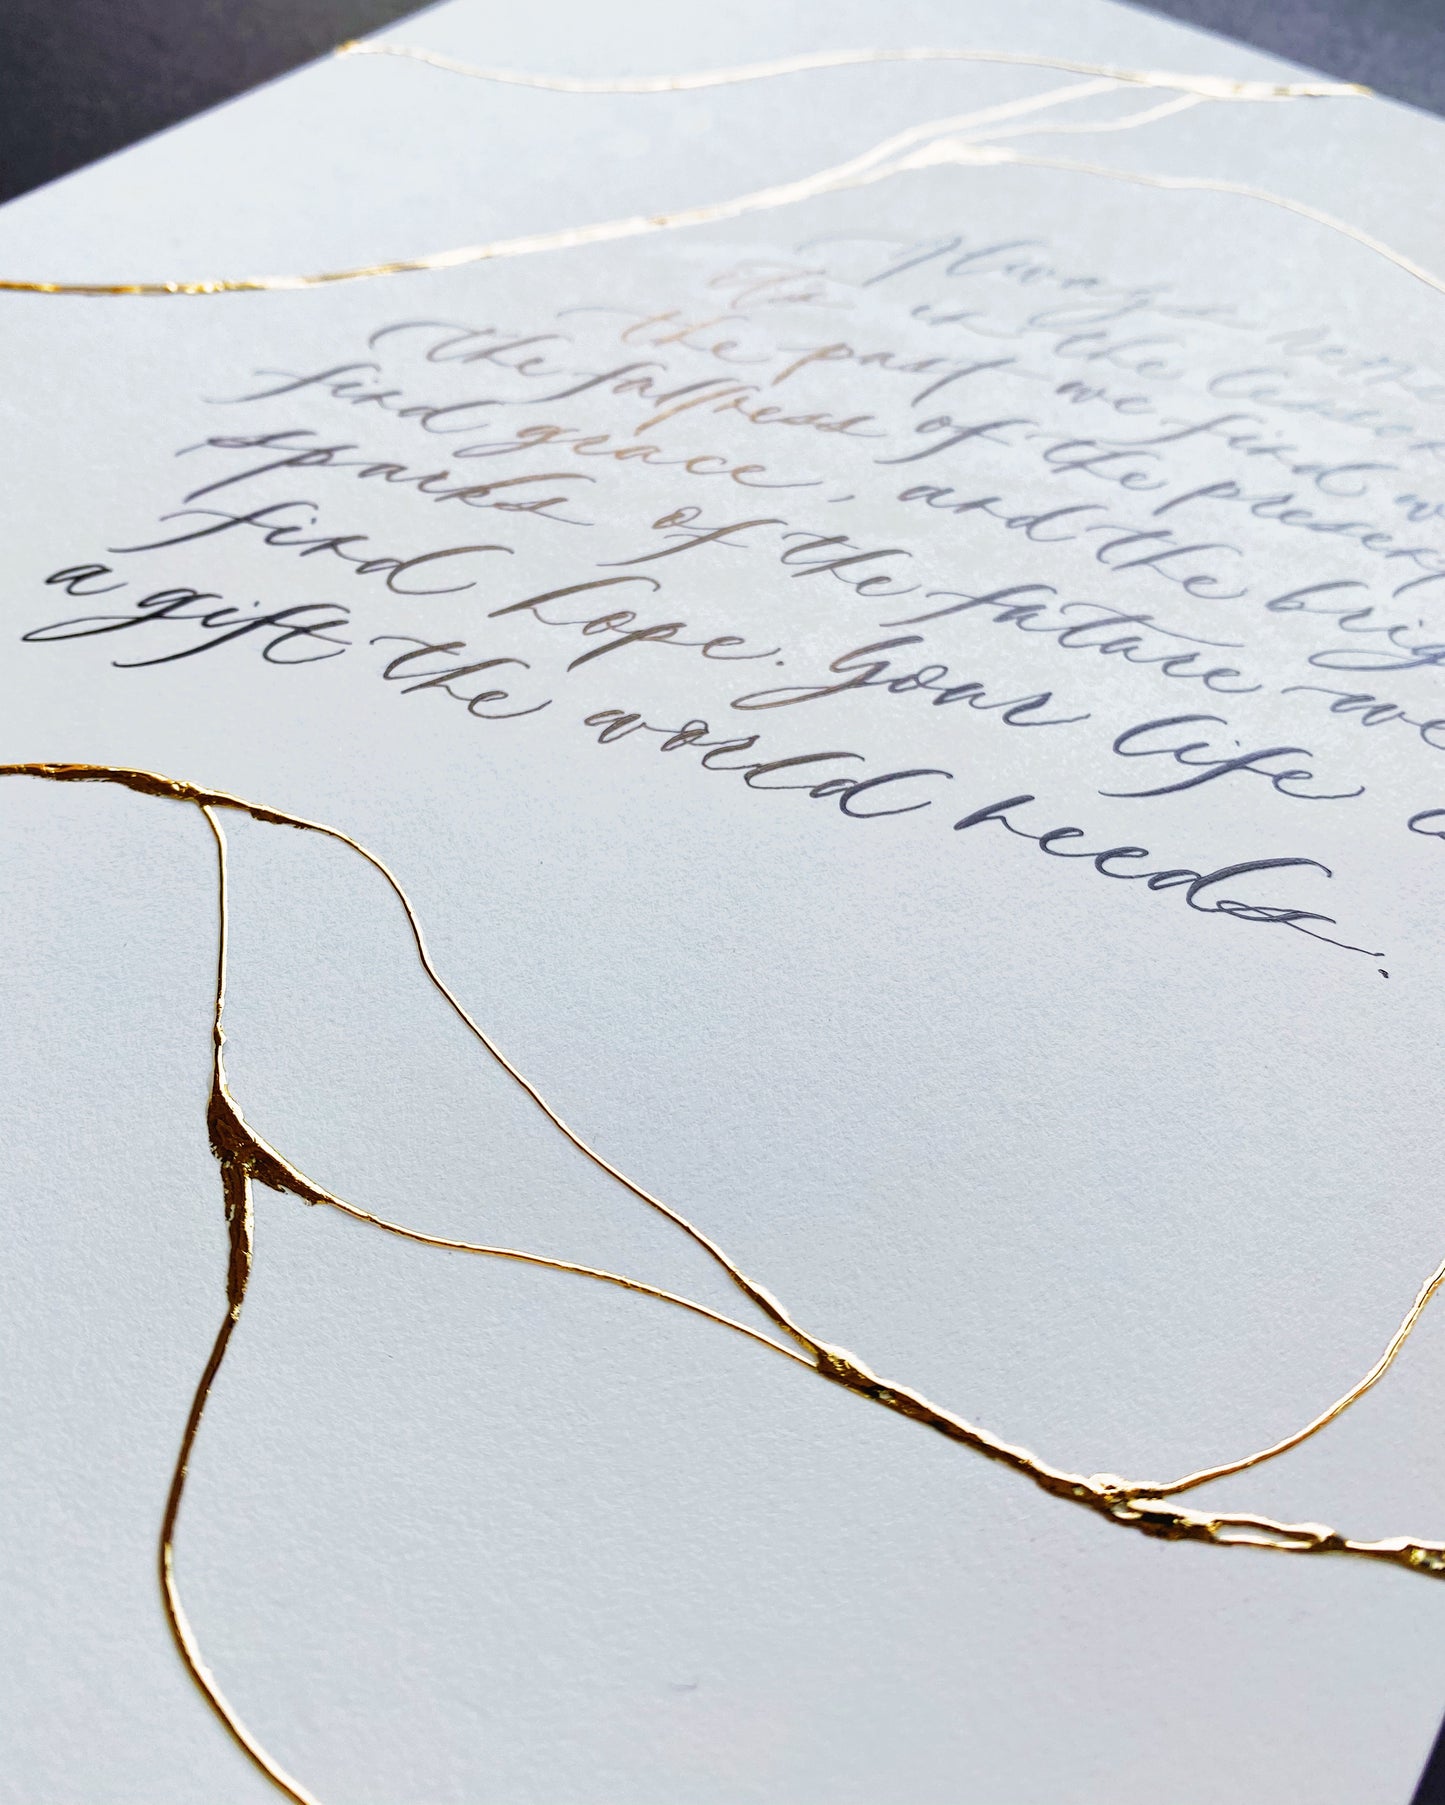 Always reme
it's in the lesson
the past we find w
the fullness of the present
find grace, and the brig
sparks of the future we
find hope. Your life
a gift the world needs.